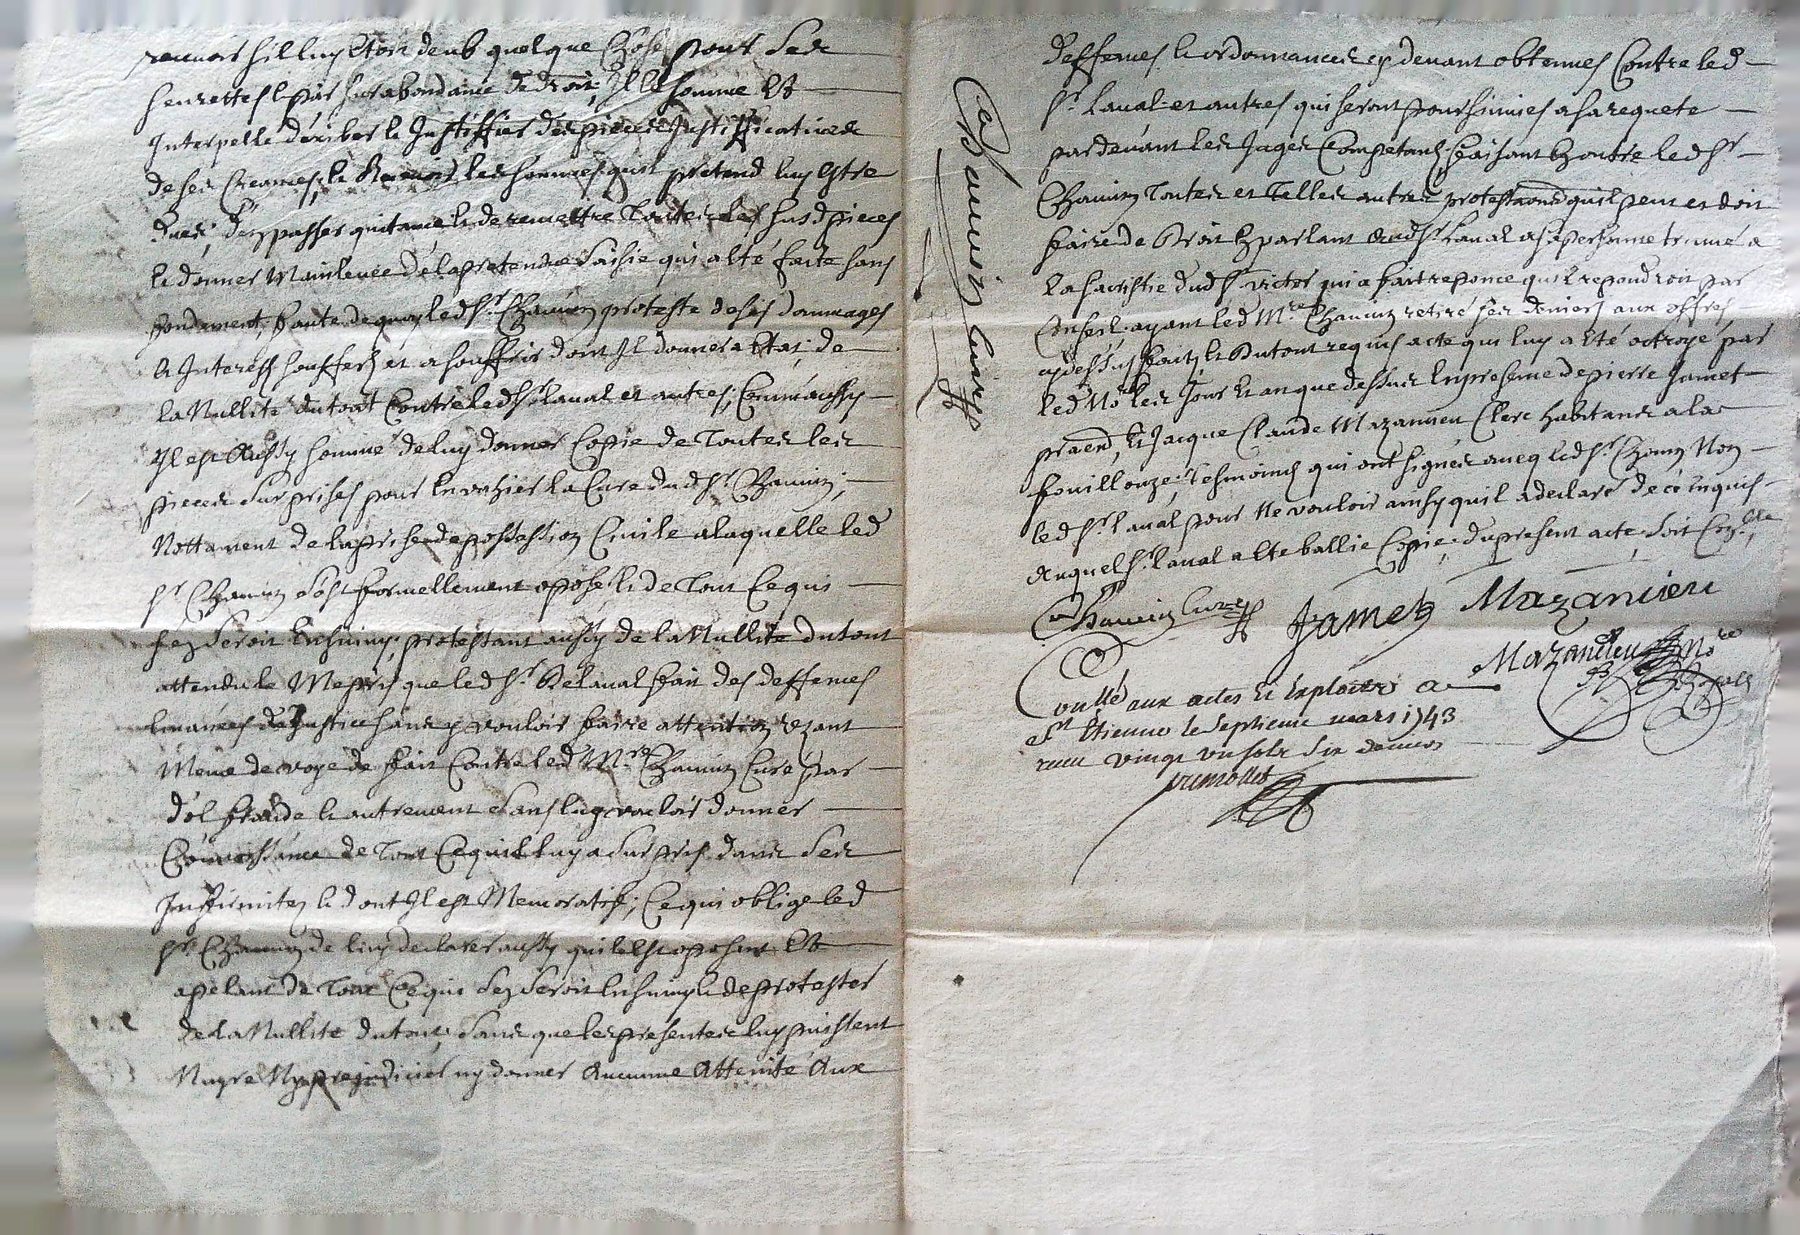 recevoir sil luy etoit deub quelque chose pour ses
heurettes et par surabondance de droit, Il le somme et
Interpelle dexiber et Justiffier des pieces Justifficatives
de ses creances, et recevoir les sommes quil pretend luy estre
dues, den passer quitance et de remettre toutes les susd pieces
et donner mainlevée de la pretendue saisie qui a eté faite sans
fondement, faute de quoy led sr. Chauvin proteste de ses dommages
et Interests soufferts et a souffrir dont Il donnera etat, de
la Nullité du tout contre led sr. Laval et autres; Comme aussy
Il est aussy sommé de luy donner Copie de toutes les
pieces surprises pour la Cure dud sr. Chauvin;
Nottament de la prise de possession Civile a laquelle led
sr. Chauvin sest formellement oposé, et de tout ce qui
sen seroit ensuivy, protestant aussy de la Nullité du tout
attendu le Mepris que led sr. de Laval fait des deffences
emanées de Justice sans y vouloir faire attention uzant
Meme de voye de fait contre led Mre. Chauvin Curé par
dol fraude et autrement sans luy vouloir donner
Connoissance de tout ce quil luy a surpris dans ses
Infirmitez et dont Il est Memoratif; Ce qui oblige led
sr. Chauvin de luy declarer aussy quil est oposant et
apelant de tout ce qui sen seroit ensuivy et de protester
de la Nullité du tout, sans que les presentes luy puissent
Nuyre Ny prejudicier ny donner aucune atteinte aux
Chauvin Curé
deffences et ordonnances cy devant obtenues contre led
sr. Laval et autres qui seront poursuivies a sa requete
pardevant les Juges competants, faisant en outre led sr.
Chauvin toutes et telles autres protestaons quil peut et doit
faire de droit en parlant aud sr. Laval a sa personne trouvé a
la sacristie dud st. victor qui a fait reponce quil repondroit par
Conseil, ayant led Mre. Chauvin retiré ses deniers aux offres
cy dessus faits, et du tout requis acte qui luy a eté octroyé par
led Nore les Jour et an que dessus en presence de pierre Jamet
praen, et Jacque Claude Mazancieu Clerc habitans a la
fouillouze, tesmoins qui ont signés avec led sr. Chauvin Non
led sr. Laval pour Ne vouloir ainsy quil a declaré de ce enquis
auquel sr. Laval a eté ballié copie du present acte, soit
Chauvin Curé Jamet Mazancieu
Mazancieu Nore Royall
Contlé aux actes et exploits a
St Etienne le septieme mars 1743
recu vingt un sols six deniers